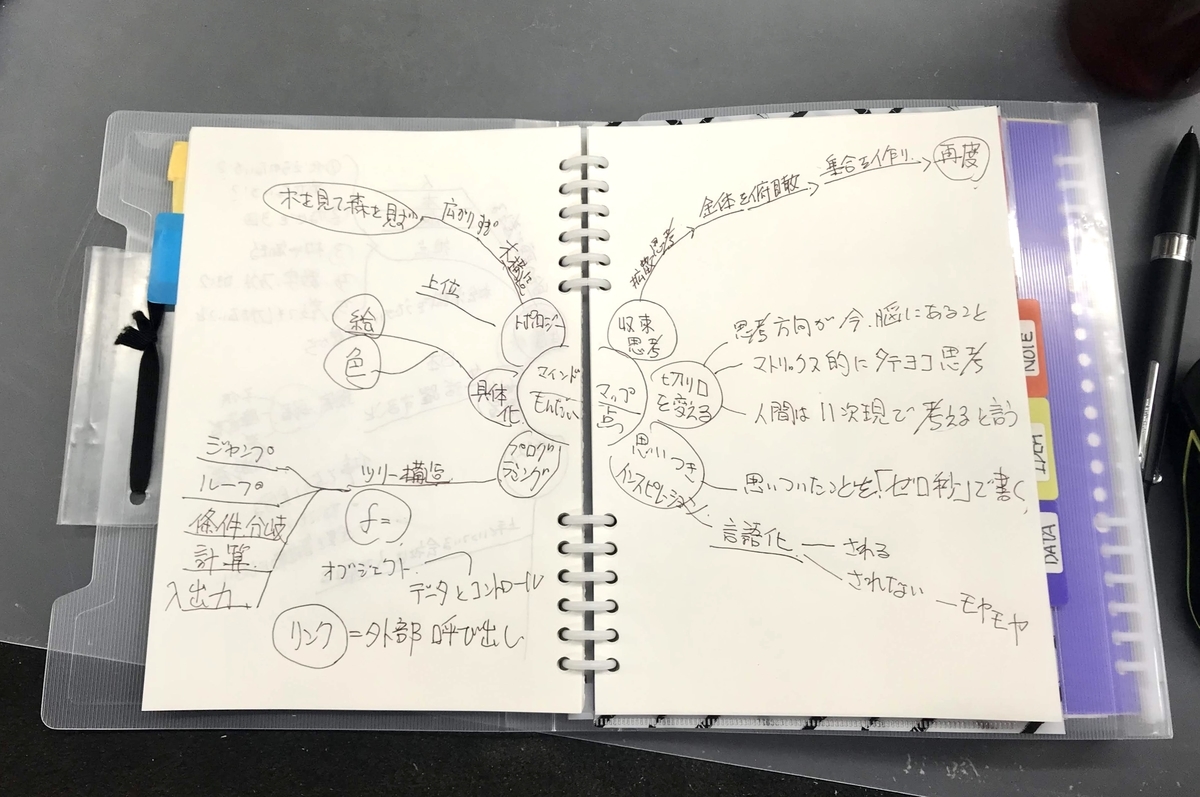 木を見て森を見ず
広がりすぎ
大構造
上位
トポロジー
絵
色
具体化
マインド
マップ
もんだい
点
プログラミング
ツリー構造
ジャンプ
ループ
条件分岐
計算
入出力
f=
オブジェクト
データとコントロール
リンク=外部呼び出し
収束
思考
拡散思考
全体を俯瞰
集合を作り
再度
切り口
を変える
思考方向が今、脳にあること
マトリックス的にタテヨコ思考
人間は11次現で考えると言う
思いつき
インスピレーション
思いついたことを「ゼロ秒」で書く
言語化
される
されない
モヤモヤ
NOTE
ITEM
DATA